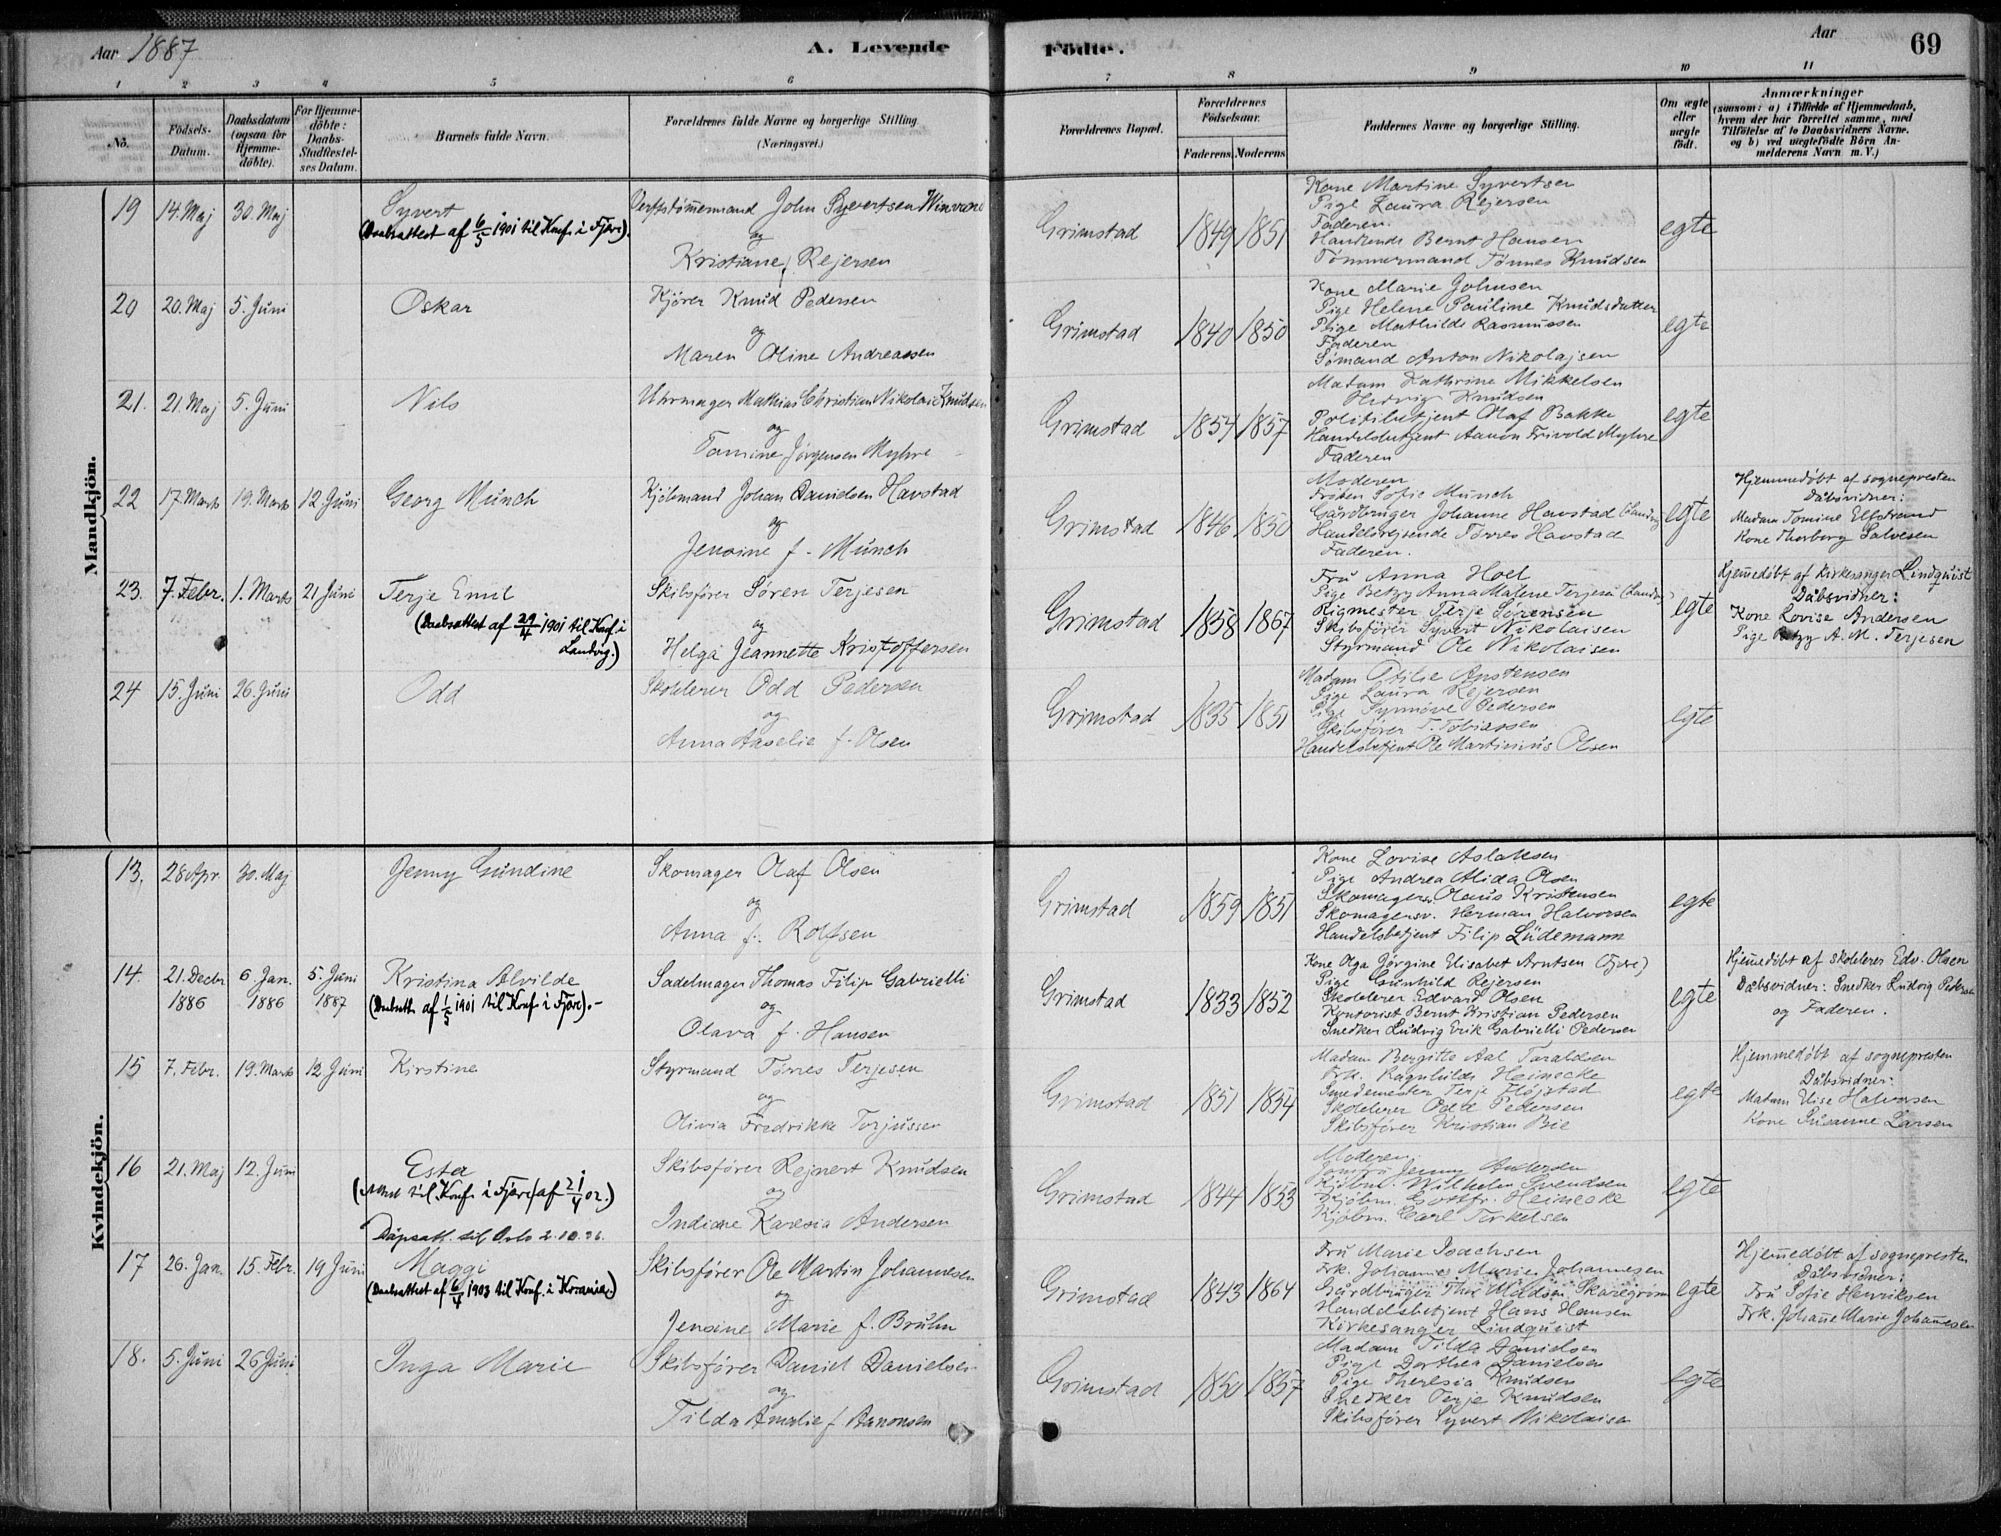 Aar 1887
A. Levende
Födte.
Aar
69
1 2 3 4 5 6 7 8 9 10 11
No.
Födsels-Datum.
Daabsdatum (ogsaa for Hjemme-döbte).
For Hjemme-döbte: Daabs-Stadfæstel-ses Datum.
Barnets fulde Navn.
Forældrenes fulde Navne og borgerlige Stilling (Næringsvei.)
Forældrenes Bopæl.
Forældrenes Födselsaar.
Faderens. Moderens.
Faddernes Navne og borgerlige Stilling.
Om ægte eller uægte födt.
Anmærkninger
(saasom: a) i Tilfælde af Hjemmedaab, hvem der har forrettet samme, med Tilföielse af to Daabsvidners Navne. og b) ved uægtefödte Börn An-melderens Navn m. V.)
Mandkjön.
19 14. Maj 30. Maj Syvert
(Daabsattest af 6/5 1901 til Konf. i Fjære).
Verftstømmermand John Syvertsen
og
Kristiane f. Rejersen
Grimstad 1849 1851
Kone Martine Syvertsen
Pige Laura Rejersen
Faderen.
Bernt Hansen
Tømmermand Tønnes Knudsen
egte
20 20. Maj 5. Juni Oskar
Kjører Knud Pedersen
og
Maren Oline Andreassen
Grimstad 1840 1850
Kone Marie Johnsen
Pige Helene Pauline Knudsdatter
Pige Mathilde Rasmussen
Faderen
Sømand Anton Nikolajsen
egte
21. 21. Maj 5. Juni Nils
Uhrmager Mathias Christian Nikolai Knudsen
og
Tomine Jørgensen Myhre
Grimstad 1857
Madam Kathrine Mikkelsen
Hedvig Knudsen
Politibetjent Olaf Bakke
Handelsbetjent Aanon Frivold Myhre
Faderen
egte
22 17. Marts 19. Marts 12. Juni Georg Münch
Kjøbmand Johan Danielsen Havstad
og
Jensine f. Münch
Grimstad 1846 1850
Moderen
Frøken Sofie Münch
Gårdbruger Johanne Havstad (Landvig)
Handelsrejsende Tørres Havstad
Faderen.
egte
Hjemmedøbt af sognepresten
Dåbsvidner:
Madam Tomine Elfstrand
Kone Thorborg Salvesen
23. 7. Febr. 1. Marts 21 Juni Terje Emil
(Daabsattest af 29/4 1901 til Konf. i Landvig.)
Skibsfører Søren Terjesen
og
Helga Jeannette Kristoffersen
Grimstad 1838 1867
Fru Anna Hoel
Pige Betzy Anna Malene Terjesen (Landvig)
Rigmester Terje Sørensen
Skibsfører Syvert Nikolaisen
Styrmand Ole Nikolaisen
egte
Hjemedøbt af Kirkesanger Lindquist
Dåbsvidner:
Kone Lovise Andersen
Pige Betzy A. M. Terjesen
24 15. Juni 26. Juni Odd
Skolelærer Odd Pedersen
og
Anna Aaselie f. Olsen
Grimstad 1835 1851
Madam Otilie Anstensen
Pige Laura Rejersen
Pige Synnøve Pedersen
Skibsfører T. Tobiassen
Handelsbetjent Ole Martinius Olsen
egte
Kvindekjön.
13. 28 Apr. 30. Maj Jenny Gundine
Skomager Olaf Olsen
og
Anna f. Rolfsen
Grimstad 1859 1851
Kone Lovise Aslaksen
Pige Andrea Alida Olsen
Skomagersv. Olaus Kristensen
Skomagersv. Herman Halvorsen
Handelsbetjent Filip Lüdemann
egte
14. 21. Decbr 1886 6. Jan. 1886 5. Juni 1887 Kristina Alvilde
(Daabsatt. af 1/5 1901 til Konf. i Fjære).-
Sadelmager Thomas Filip Gabrielli
og
Olava f. Hansen
Grimstad 1833 1852
Kone Olga Jörgine Elisabet Arntsen (Fjære)
Pige Gunhild Rejersen
Skolelerer Edvard Olsen
Kontorist Bernt Kristian Pedersen
Snedker Ludvig Erik Gabrielli Pedersen
egte
Hjemedøbt af skolelerer Edv. Olsen
Dåbsvidner: Snedker Ludvig Pedersen
og Faderen.
15 7. Febr. 19. Marts 12 Juni Kirstine
Styrmand Tørres Terjesen
og
Olivia Fredrikke Torjussen
Grimstad 1851 1854
Madam Bergitte Aal Taraldsen
Frk. Ragnhilda Heinecke
Smedemester Terje Fløjstad
Skolelerer Odd Pedersen
Skibsfører Kristian Bie
egte
Hjemmedøbt af sognepresten
Dåbsvidner:
Madam Elise Halvorsen
Kone Susanne Larsen
16 21. Maj 12. Juni Ester
(Attest til Konf. i Fjære af 21/4 02.)
Dåpsatt. til Oslo 2.10.36.
Skibsfører Rejnert Knudsen
og
Indiane Karesia Andersen
Grimstad 1844 1853
Moderen
Jomfru Jenny Andersen
Kjøbm. Wilhelm Svendsen
Kjøbm. Gottfr. Heinecke
Kjøbm. Carl Terkelsen
egte
17 26. Jan. 15. Febr. 19 Juni Maggi
(Daabsattest af 6/4 1903 til Konf. i Kr.ania.)
Skibsfører Ole Martin Johannesen
og
Jensine Marie f. Bruhn
Grimstad 1843 1864
Fru Marie Joachsen
Frk. Johanne Marie Johannesen
Gårdbruger Thor Madsen Skaregrøm
Handelsbetjent Hans Hansen
Kirkesanger Lindquist
egte
Hjemedøbt af sognepresten
Dåbsvidner:
Fru Sofie Henriksen
Frk. Johanne Marie Johannesen
18. 5. Juni 26 Juni Inga Marie
Skibsfører Daniel Danielsen
og
Tilda Amalie f. Aanonsen
Grimstad 1850 1857
Madam Tilda Danielsen
Pige Dorthea Danielsen
Pige Theresia Knudsen
Snedker Terje Knudsen
Skibsfører Syvert Nikolaisen
egte